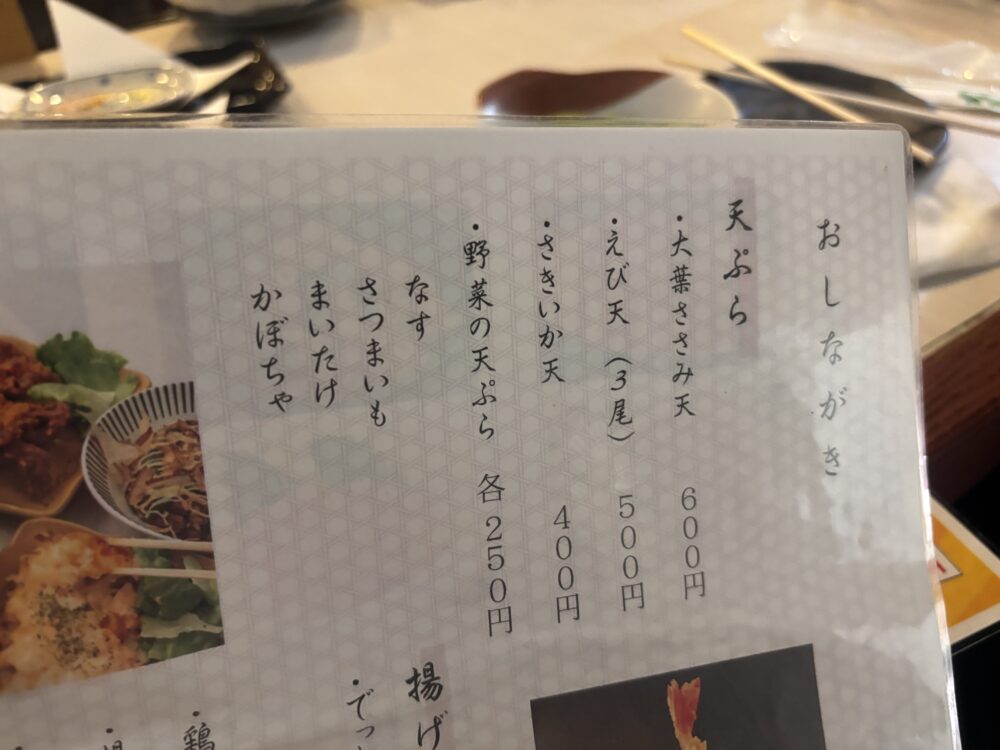 おしながき
天ぷら
・大葉ささみ天 600円
・えび天（3尾） 500円
・さきいか天 400円
・野菜の天ぷら 各250円
なす
さつまいも
まいたけ
かぼちゃ
揚げ
・でっ
・鶏